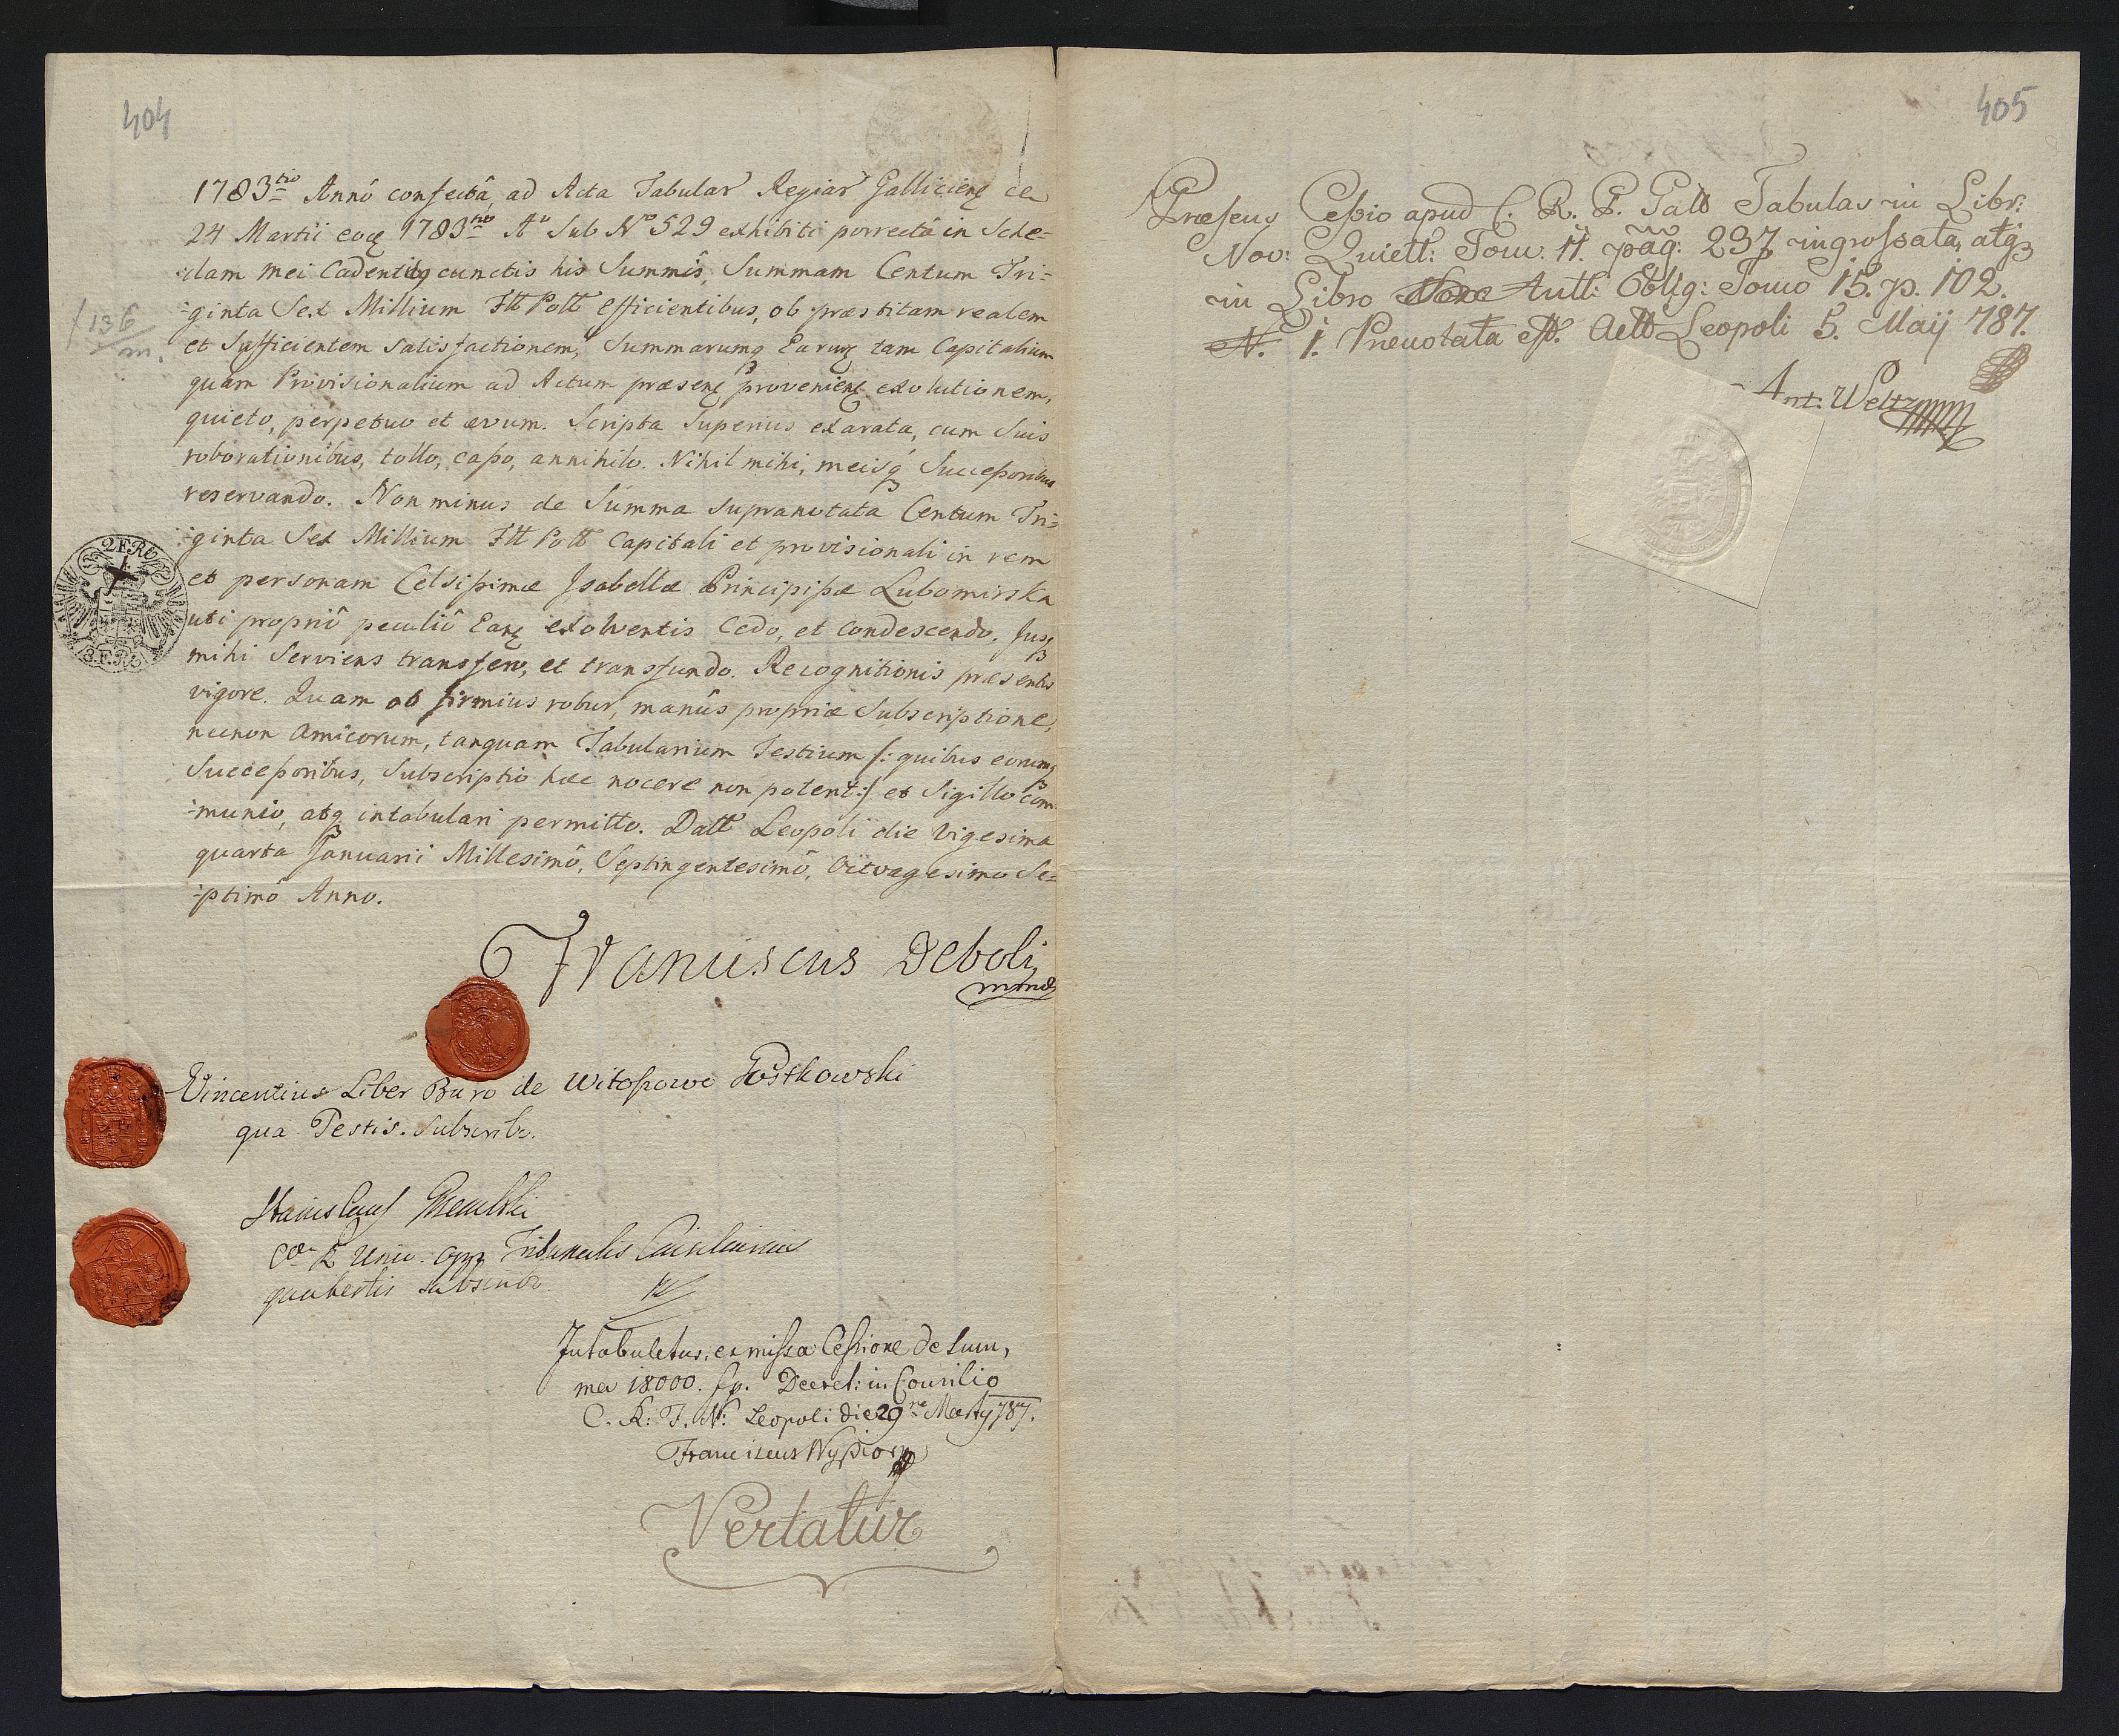 404
1783tio Annô confectâ, ad Acta Tabular Regiar Galliciens de
24 Martii eoq 1783tio Ao Sub No 529 exhibiti porrectâ in Sche=
=dam mei Cadentibq cunctis his Summis, Summam Centum Tri=
=ginta Sex Millium Fll Poll efficientibus, ob præstitam realem
136/m.
et Sufficientem Satisfactionem, Summarumq Earumq tam Capitalium
quam Provisionalium ad Actum præsens provenien exolutionem,
quieto, perpetuo et ævum. Scripta Superius exarata, cum Suis
roborationibus, tollo, casso, annihilo. Nihil mihi, meisq Successoribus
reservando. Non minus de Summa Supranotata Centum Tri=
=ginta Sex Millium Fll Poll Capitali et provisionali in rem
et personam Celsissimæ Isabellæ Principissæ Lubomirska
uti propriô peculiô Eans exolventis Cedo, et Condescendo, Jusq
mihi Serviens transfero, et transfundo. Recognitionis præsentis
vigore. Quam ob firmius robur, manûs propriæ Subscriptione,
necnon Amicorum, tanquam Tabularium Testium /: quibus eorumq
Successoribus, Subscriptio hæc nocere non potent :/ et Sigillo com=
=munio, atq intabulari permitto. Datt Leopoli die Vigesima
quarta Januarii Millesimô, Septingentesimô, Octvagesimo Se=
=ptimô Anno.
2F.R.
3.F.R.
Franciscus Deboli
mmo
Vincentius Liber Baro de Witossowo Jostkowski
qua Testis. Subscribo.
Stanislaus
Tribunalis
qua testis subscribo
Intabuletur, ex missa Cessione de Sum,
ma 18000. fp. Decret: in Consilio
C. R: F. N: Leopoli die 29na Martij 787.
Franciscus Nyssior
Vertatur
405
Præsens Cessio apud C. R. P. Gall Tabulas in Libr:
Nov: Quiett: Tom. 11. pag: 237 ingrossata, atq
in Libro Antt: Oblig: Tomo 15. p. 102.
N. 1. Prenotata est. Actt Leopoli 5. Maij 787.
Ant: Weltz